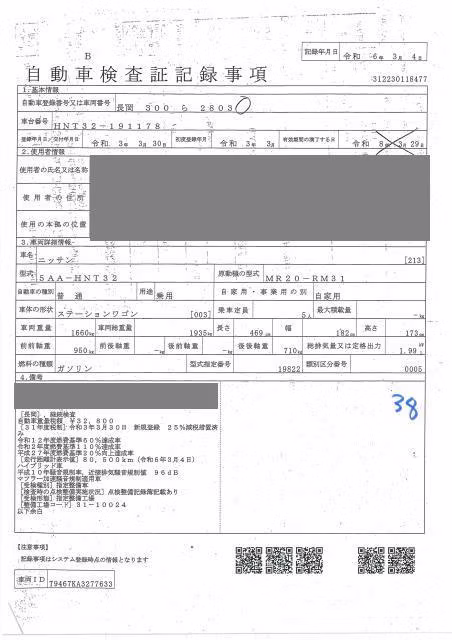 B
記録年月日 令和 6年 3月 4日
自動車検査証記録事項
312230118477
1.基本情報
自動車登録番号又は車両番号 長岡 300 ら 2803
車台番号 HNT32-191178
登録年月日/交付年月日 令和 3年 3月 30日 初度登録年月 令和 3年 3月 有効期間の満了する日 令和 8年 3月 29日
2.使用者情報
使用者の氏名又は名称
使用者の住所
使用の本拠の位置
3.車両詳細情報
車名 ニッサン [213]
型式 5AA-HNT32 原動機の型式 MR20-RM31
自動車の種別 普通 用途 乗用 自家用・事業用の別 自家用
車体の形状 ステーションワゴン [003] 乗車定員 5人 最大積載量 -kg
車両重量 1660kg 車両総重量 1935kg 長さ 469cm 幅 182cm 高さ 173cm
前前軸重 950kg 前後軸重 -kg 後前軸重 -kg 後後軸重 710kg 総排気量又は定格出力 1.99
燃料の種類 ガソリン 型式指定番号 19822 類別区分番号 0005
4.備考
38
[長岡],継続検査
自動車重量税額 ¥32,800
[31年度税制]令和3年3月30日 新規登録 25%減税措置済
み
令和12年度燃費基準60%達成車
令和2年度燃費基準110%達成車
平成27年度燃費基準20%向上達成車
[走行距離計表示値]80,500km(令和6年3月4日)
ハイブリッド車
平成10年騒音規制車,近接排気騒音規制値 96dB
マフラー加速騒音規制適用車
[受検種別]指定整備車
[検査時の点検整備実施状況]点検整備記録簿記載あり
[受検形態]指定整備工場
[整備工場コード]31-10024
以下余白
【注意事項】
記録事項はシステム登録時点の情報となります
車両ID T9467KA3277633